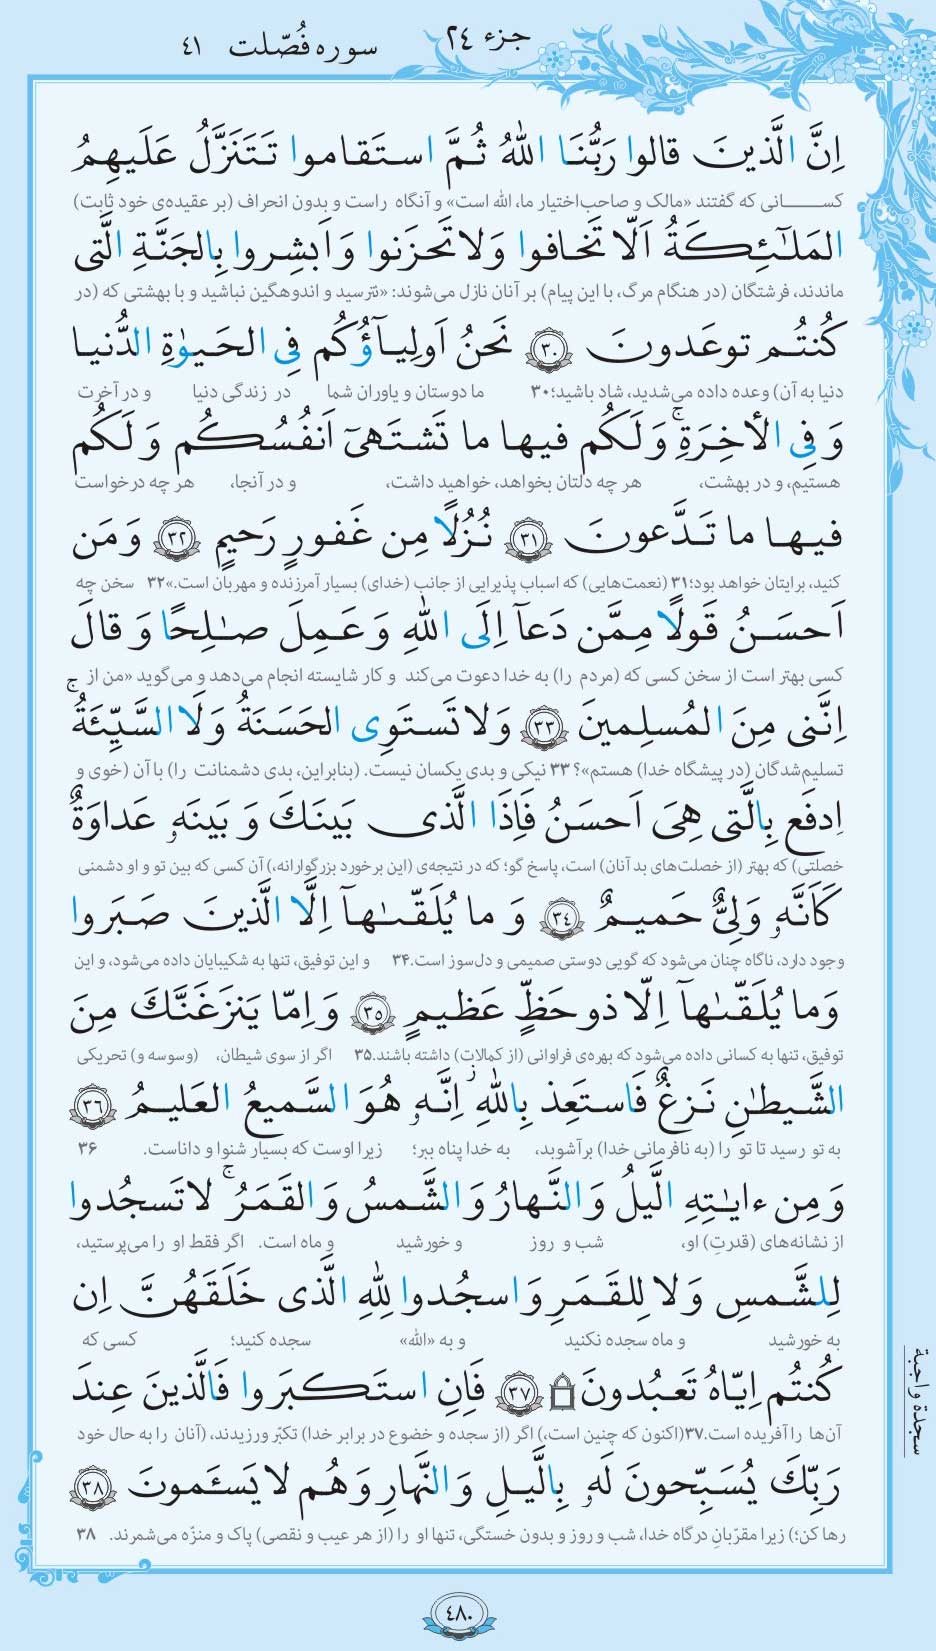 جزء ۲۴
سوره فُصّلت ۴۱
اِنَّ الَّذینَ قالوا رَبُّنَا اللهُ ثُمَّ استَقاموا تَتَنَزَّلُ عَلَیهِمُ
کسانی که گفتند «مالک و صاحب‌اختیار ما، الله است» و آنگاه راست و بدون انحراف (بر عقیده‌ی خود ثابت)
المَلٰٓئِکَةُ اَلّا تَخافوا وَلا تَحزَنوا وَ اَبشِروا بِالجَنَّةِ الَّتی
ماندند، فرشتگان (در هنگام مرگ، با این پیام) بر آنان نازل می‌شوند: «نترسید و اندوهگین نباشید و با بهشتی که (در
کُنتُم توعَدونَ ﴿۳۰﴾ نَحنُ اَولِیآؤُکُم فِی الحَیوٰةِ الدُّنیا
دنیا به آن) وعده داده می‌شدید، شاد باشید؛۳۰ ما دوستان و یاوران شما در زندگی دنیا و در آخرت
وَ فِی الأخِرَةِ ۚ وَ لَکُم فیها ما تَشتَهیٓ اَنفُسُکُم وَ لَکُم
هستیم، و در بهشت، هر چه دلتان بخواهد، خواهید داشت، و در آنجا، هر چه درخواست
فیها ما تَدَّعونَ ﴿۳۱﴾ نُزُلًا مِن غَفورٍ رَحیمٍ ﴿۳۲﴾ وَ مَن
کنید، برایتان خواهد بود؛۳۱ (نعمت‌هایی) که اسباب پذیرایی از جانب (خدای) بسیار آمرزنده و مهربان است.»۳۲ سخن چه
اَحسَنُ قَولًا مِمَّن دَعآ اِلَی اللهِ وَ عَمِلَ صٰلِحًا وَ قالَ
کسی بهتر است از سخن کسی که (مردم را) به خدا دعوت می‌کند و کار شایسته انجام می‌دهد و می‌گوید «من از
اِنَّنی مِنَ المُسلِمینَ ﴿۳۳﴾ وَلا تَستَوِی الحَسَنَةُ وَلَا السَّیِّئَةُ ۚ
تسلیم‌شدگان (در پیشگاه خدا) هستم»؟ ۳۳ نیکی و بدی یکسان نیست. (بنابراین، بدی دشمنانت را) با آن (خوی و
اِدفَع بِالَّتی هِیَ اَحسَنُ فَاِذَا الَّذی بَینَکَ وَ بَینَهٗ عَداوَةٌ
خصلتی) که بهتر (از خصلت‌های بد آنان) است، پاسخ گو؛ که در نتیجه‌ی (این برخورد بزرگوارانه،) آن کسی که بین تو و او دشمنی
کَاَنَّهٗ وَلِیٌّ حَمیمٌ ﴿۳۴﴾ وَ ما یُلَقّٰىهآ اِلَّا الَّذینَ صَبَروا
وجود دارد، ناگاه چنان می‌شود که گویی دوستی صمیمی و دل‌سوز است.۳۴ و این توفیق، تنها به شکیبایان داده می‌شود، و این
وَما یُلَقّٰىهآ اِلّا ذو حَظٍّ عَظیمٍ ﴿۳۵﴾ وَ اِمّا یَنزَغَنَّکَ مِنَ
توفیق، تنها به کسانی داده می‌شود که بهره‌ی فراوانی (از کمالات) داشته باشند.۳۵ اگر از سوی شیطان، (وسوسه و) تحریکی
الشَّیطٰنِ نَزغٌ فَاستَعِذ بِاللهِ ۖ اِنَّهٗ هُوَ السَّمیعُ العَلیمُ ﴿۳۶﴾
به تو رسید تا تو را (به نافرمانی خدا) برآشوبد، به خدا پناه ببر؛ زیرا اوست که بسیار شنوا و داناست. ۳۶
وَ مِن ءایٰتِهِ الَّیلُ وَ النَّهارُ وَ الشَّمسُ وَ القَمَرُ ۚ لا تَسجُدوا
از نشانه‌های (قدرتِ) او، شب و روز و خورشید و ماه است. اگر فقط او را می‌پرستید،
لِلشَّمسِ وَلا لِلقَمَرِ وَ اسجُدوا لِلّٰهِ الَّذی خَلَقَهُنَّ اِن
به خورشید و ماه سجده نکنید و به «الله» سجده کنید؛ کسی که
کُنتُم اِیّاهُ تَعبُدونَ ۩ ﴿۳۷﴾ فَاِنِ استَکبَروا فَالَّذینَ عِندَ
آن‌ها را آفریده است.۳۷(اکنون که چنین است،) اگر (از سجده و خضوع در برابر خدا) تکبّر ورزیدند، (آنان را به حال خود
رَبِّکَ یُسَبِّحونَ لَهٗ بِالَّیلِ وَ النَّهارِ وَ هُم لا یَسئَمونَ ﴿۳۸﴾
رها کن؛) زیرا مقرّبانِ درگاه خدا، شب و روز و بدون خستگی، تنها او را (از هر عیب و نقصی) پاک و منزّه می‌شمرند. ۳۸
سجدة واجبة
۴۸۰